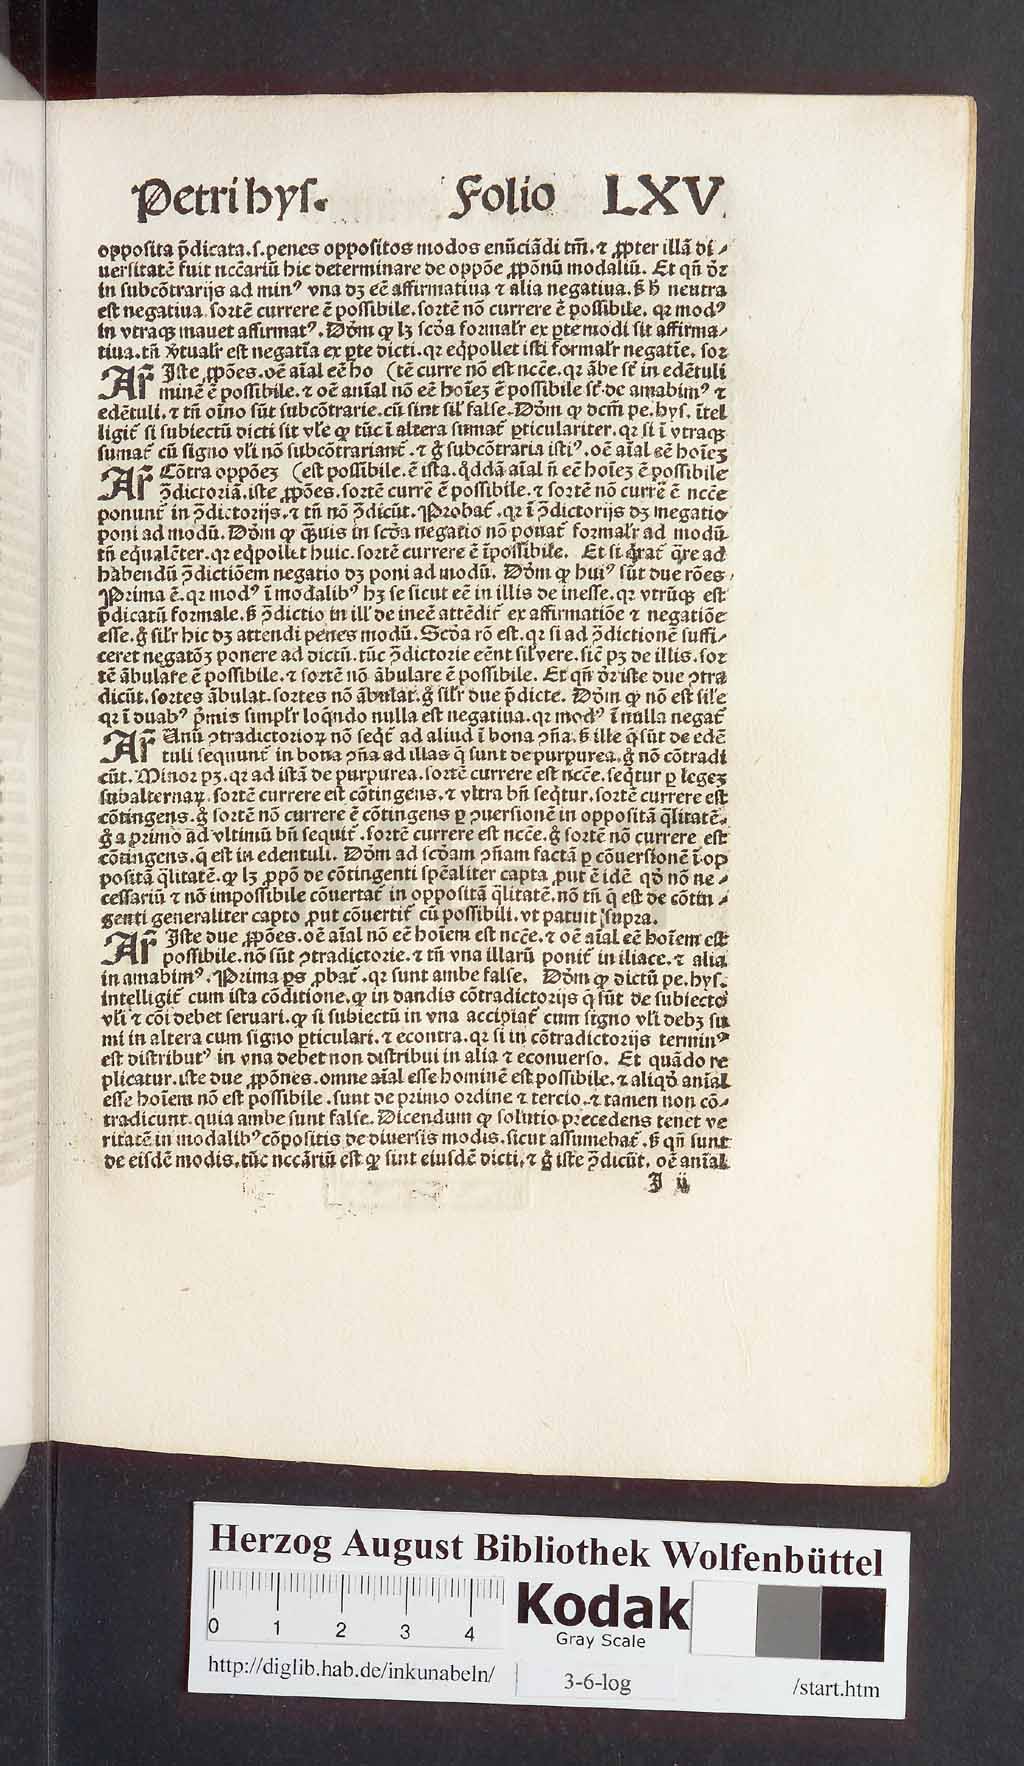 Petri hys. Folio LXV
opposita p̄dicata.s.penes oppositos modos enūciādi tm̄.⁊ ꝓpter illā di-
uersitatē fuit nccāriū hic determinare de oppōe ꝓpōnū modaliū. Et qn̄ dr̄
in subcōtrarijs ad min⁹ vna dꝫ eē affirmatiua ⁊ alia negatiua.ẜ h̄ neutra
est negatiua.sortē currere ē possibile.sortē nō currere ē possibile. qꝛ mod⁹
in vtraqꝫ manet affirmat⁹. Dōm ꝙ lꝫ scd̄a formalr̄ ex ꝑte modi sit affirma-
tiua.tn̄ v̄tualr̄ est negatīa ex ꝑte dicti.qꝛ eq̄pollet isti formalr̄ negatīe. sor
Ar̄ Iste ꝓpōes.oē aīal eē ho (tē curre nō est ncce.qꝛ ābe st̄ in edētuli
minē ē possibile.⁊ oē anīal nō eē hoīeꝫ ē possibile st̄ de amabim⁹ ⁊
edētuli.⁊ tn̄ oīno sūt subcōtrarie.cū sint sil' false. Dōm ꝙ dcm̄ pe.hys. ītel
ligit̄ si subiectū dicti sit vl'e ꝙ tūc ī altera sumat̄ ꝑticulariter.qꝛ si ī vtraqꝫ
sumat̄ cū signo vl'i nō subcōtrariant̄.⁊ g̊ subcōtraria isti⁹.oē aīal eē hoīeꝫ
Ar̄ Cōtra oppōeꝫ (est possibile.ē ista.q̄ddā aīal n̄ eē hoīeꝫ ē possibile
ꝯ̄dictoriā.iste ꝓpōes.sortē currē ē possibile.⁊ sortē nō currē ē ncce
ponunt̄ in ꝯ̄dictorijs.⁊ tn̄ nō ꝯ̄dicūt. Probat̄.qꝛ ī ꝯ̄dictorijs dꝫ negatio
poni ad modū. Dōm ꝙ q̄uis in scd̄a negatio nō ponat̄ formalr̄ ad modū
tn̄ eq̄ualēter.qꝛ eq̄pollet huic.sortē currere ē īpossibile. Et si q̄rat̄ q̄re ad
habendū ꝯ̄dictiōem negatio dꝫ poni ad modū. Dōm ꝙ hui⁹ sūt due rōes.
Prima ē.qꝛ mod⁹ ī modalib⁹ hꝫ se sicut eē in illis de inesse.qꝛ vtrūqꝫ est
p̄dicatū formale.ẜ ꝯ̄dictio in ill' de ineē attēdit̄ ex affirmatiōe ⁊ negatiōe
esse.g̊ silr̄ hic dꝫ attendi penes modū. Scd̄a rō est.qꝛ si ad ꝯ̄dictionē suffi-
ceret negatōꝫ ponere ad dictū.tūc ꝯ̄dictorie eēnt sil' vere.sic̄ pꝫ de illis.sor
tē ābulare ē possibile.⁊ sortē nō ābulare ē possibile. Et qn̄ dr̄ iste due ꝯtra
dicūt.sortes ābulat.sortes nō ābulat.g̊ silr̄ due p̄dicte. Dōm ꝙ nō est sil'e
qꝛ ī duab⁹ p̄mis simplr̄ loq̄ndo nulla est negatiua.qꝛ mod⁹ ī nulla negat̄
Ar̄ Unū ꝯtradictorioꝝ nō seq̄t̄ ad aliud ī bona ꝯn̄a.ẜ ille q̄ sūt de edē
tuli sequunt̄ in bona ꝯn̄a ad illas q̄ sunt de purpurea.g̊ nō cōtradi
cūt. Minor pꝫ.qꝛ ad istā de purpurea.sortē currere est ncce.seq̄tur ꝑ legeꝫ
subalternaꝝ.sortē currere est cōtingens.⁊ vltra bn̄ seq̄tur.sortē currere est
cōtingens.g̊ sortē nō currere ē cōtingens ꝑ ꝯuersionē in oppositā q̄litatē.
g̊ a primo ad vltimū bn̄ sequit̄.sortē currere est ncce.g̊ sortē nō currere est
cōtingens.q̄ est in edentuli. Dōm ad scd̄am ꝯn̄am factā ꝑ cōuersionē ī op
positā q̄litatē.ꝙ lꝫ ꝓpō de cōtingenti spēaliter capta ꝓut ē idē qd̄ nō ne-
cessariū ⁊ nō impossibile cōuertat̄ in oppositā q̄litatē.nō tn̄ q̄ est de cōtin-
genti generaliter capto ꝓut cōuertit̄ cū possibili.vt patuit supra.
Ar̄ Iste due ꝓpōes.oē aīal nō eē hoīem est ncce.⁊ oē aīal eē hoīem est
possibile.nō sūt ꝯtradictorie.⁊ tn̄ vna illarū ponit̄ in iliace.⁊ alia
in amabim⁹. Prima ps ꝓbat̄.qꝛ sunt ambe false. Dōm ꝙ dictū pe.hys.
intelligit̄ cum ista cōditione.ꝙ in dandis cōtradictorijs q̄ sūt de subiecto
vl'i ⁊ cōi debet seruari.ꝙ si subiectū in vna accipiat̄ cum signo vl'i debꝫ su
mi in altera cum signo ꝑticulari.⁊ econtra.qꝛ si in cōtradictorijs termin⁹
est distribut⁹ in vna debet non distribui in alia ⁊ econuerso. Et quādo re
plicatur.iste due ꝓpōnes.omne aīal esse hominē est possibile.⁊ aliqd̄ anīal
esse hoīem nō est possibile.sunt de primo ordine ⁊ tercio.⁊ tamen non cō-
tradicunt.quia ambe sunt false. Dicendum ꝙ solutio precedens tenet ve
ritatē in modalib⁹ cōpositis de diuersis modis.sicut assumebat̄.ẜ qn̄ sunt
de eisdē modis.tūc nccāriū est ꝙ sint eiusdē dicti.⁊ g̊ iste ꝯ̄dicūt. oē anīal
I ij
Herzog August Bibliothek Wolfenbüttel
Kodak
Gray Scale
0 1 2 3 4
http://diglib.hab.de/inkunabeln/ 3-6-log /start.htm